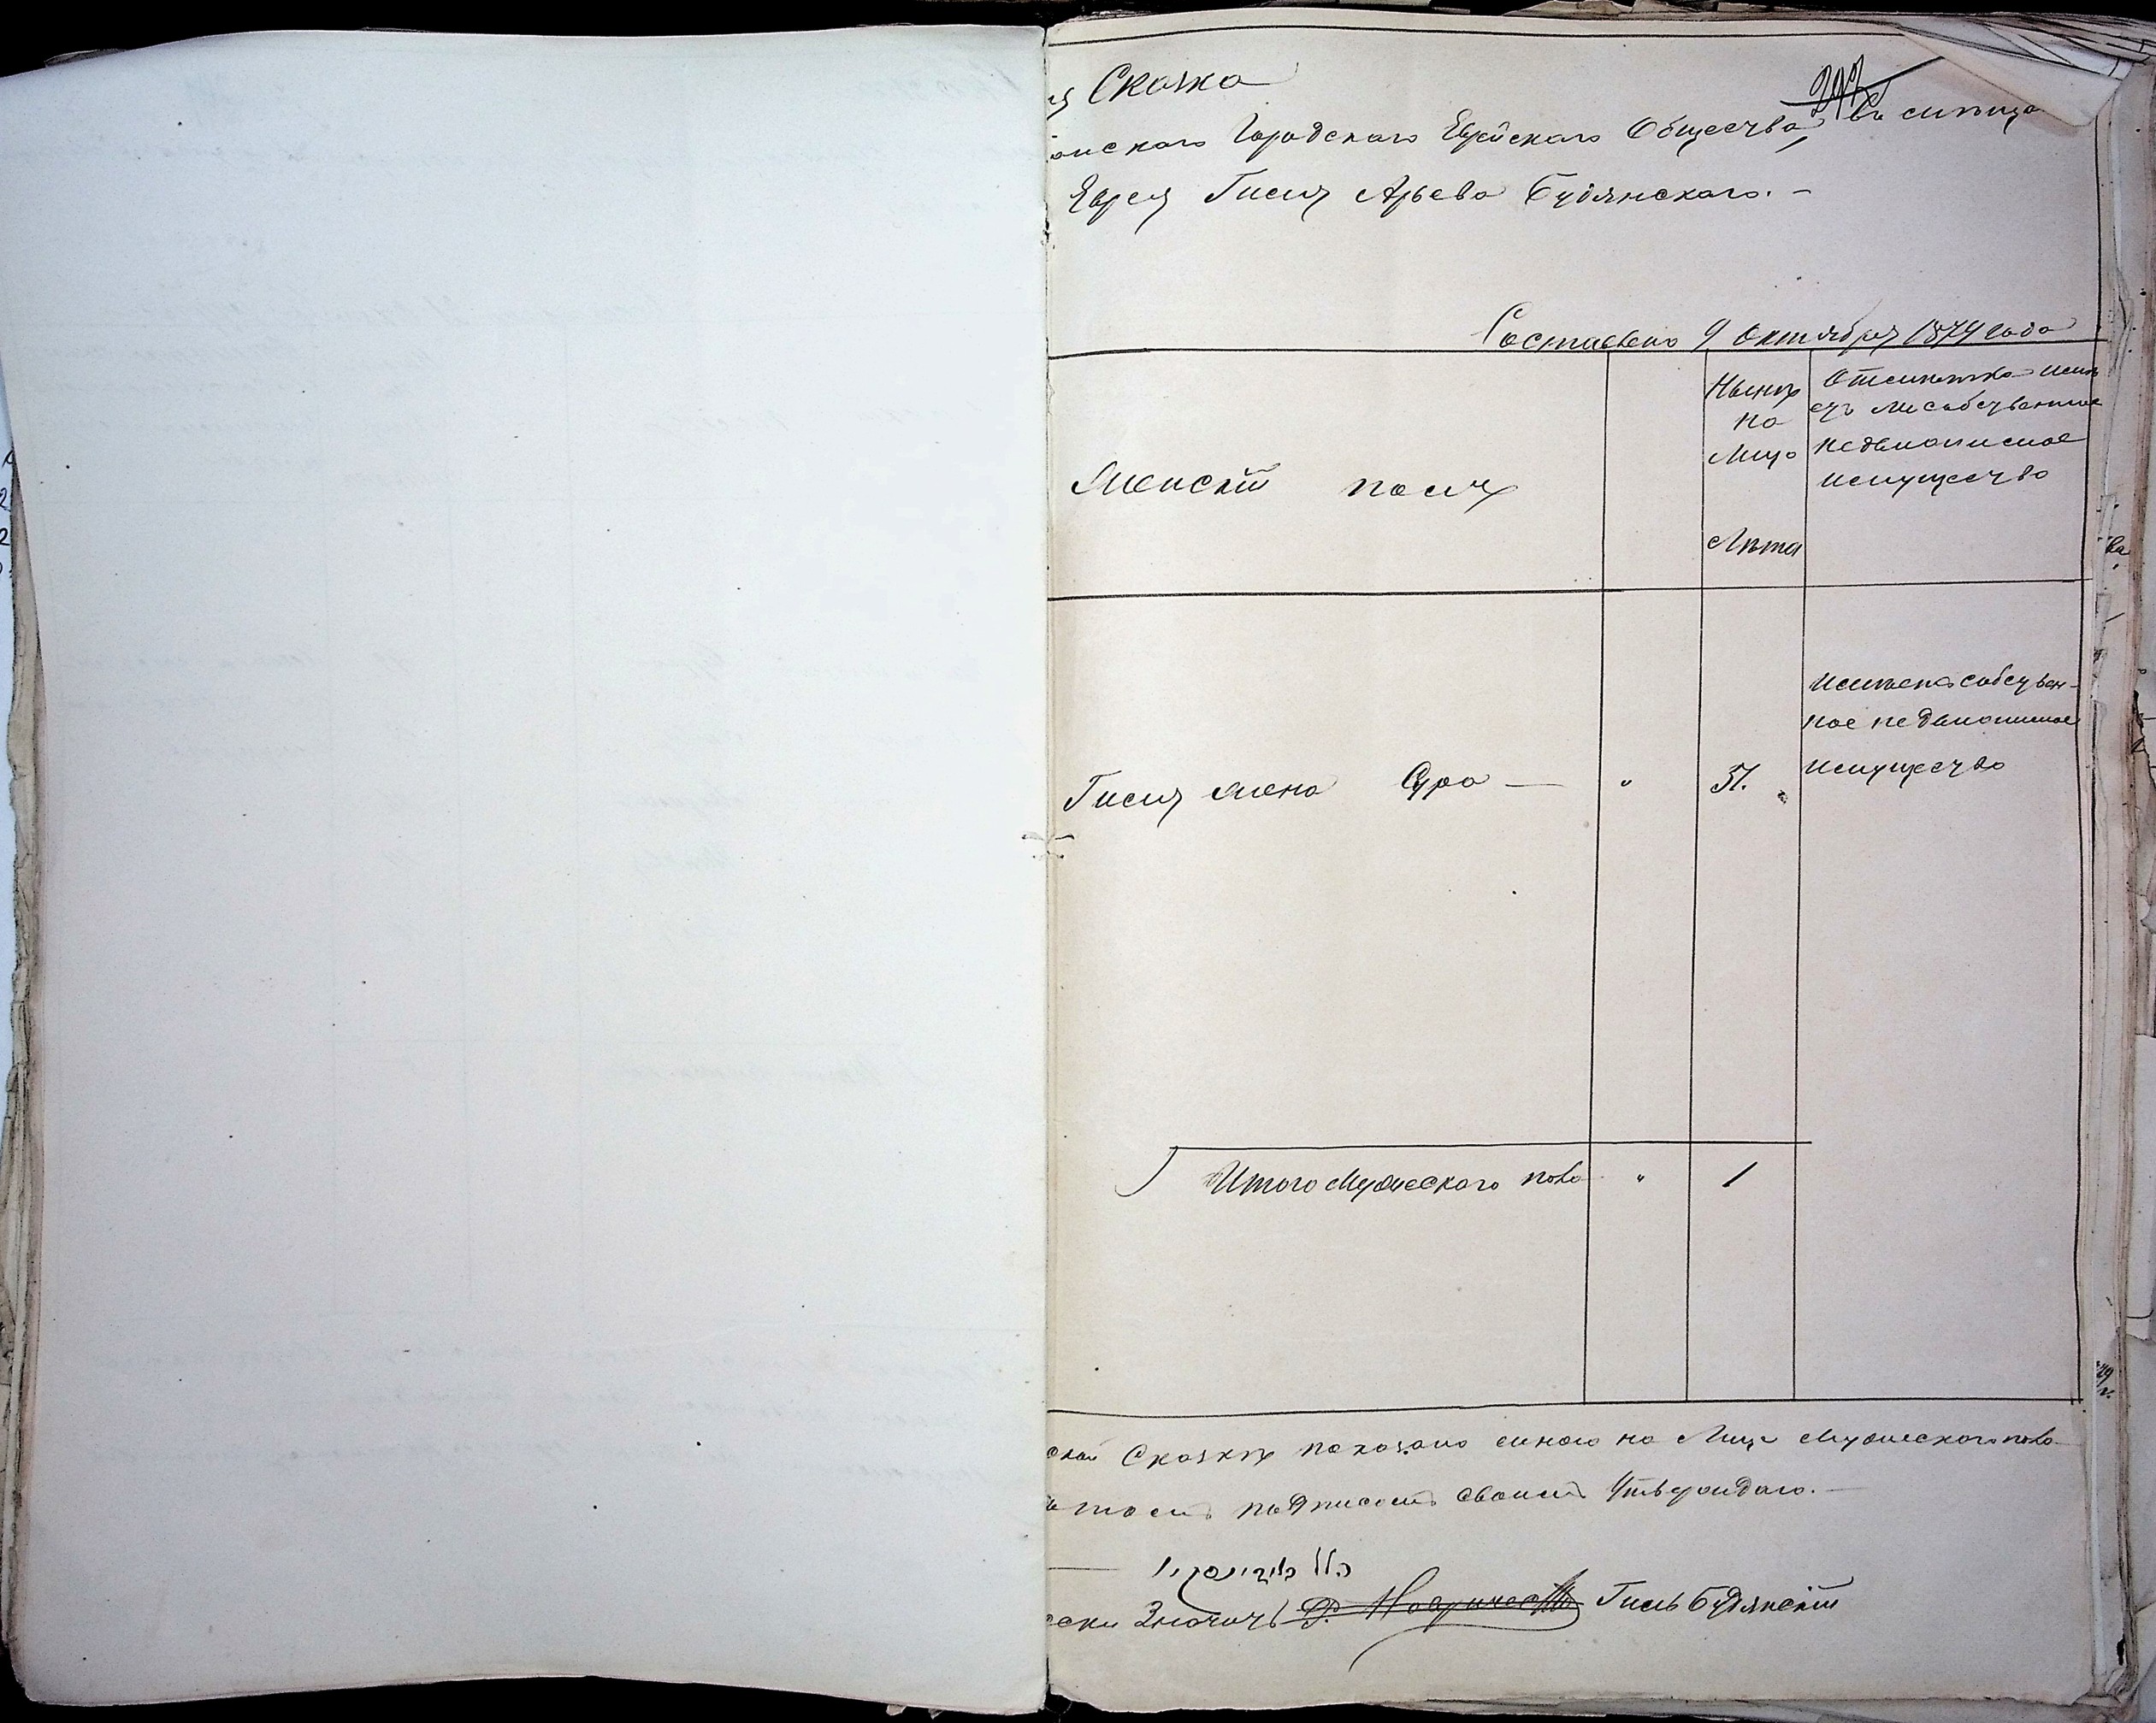 я Сказка
247
онскаго Городскаго Еврейскаго Общества,
Еврея Гиля Арьева Будянскаго. –
Составлено 9 Октября 1874 года
Женскій полъ
Нынѣ
на
Лицо
Лѣта
Отмѣтка имѣ
етъ ли собственное
недвижимое
имущество
Гиля жена Сура — " 37.
имѣетъ собствен-
ное недвижимое
имущество
Итого Мужескаго пола " 1
ской Сказкѣ показано мною на Лицо Мужескаго пола
томъ подписомъ своимъ Утверждаю. —
ски Значитъ Гиль Будянскій